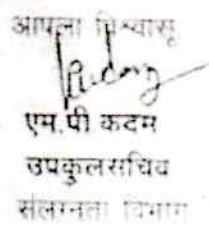 आपला विश्वासू
एम.पी कदम
उपकुलसचिव
संलग्नता विभाग